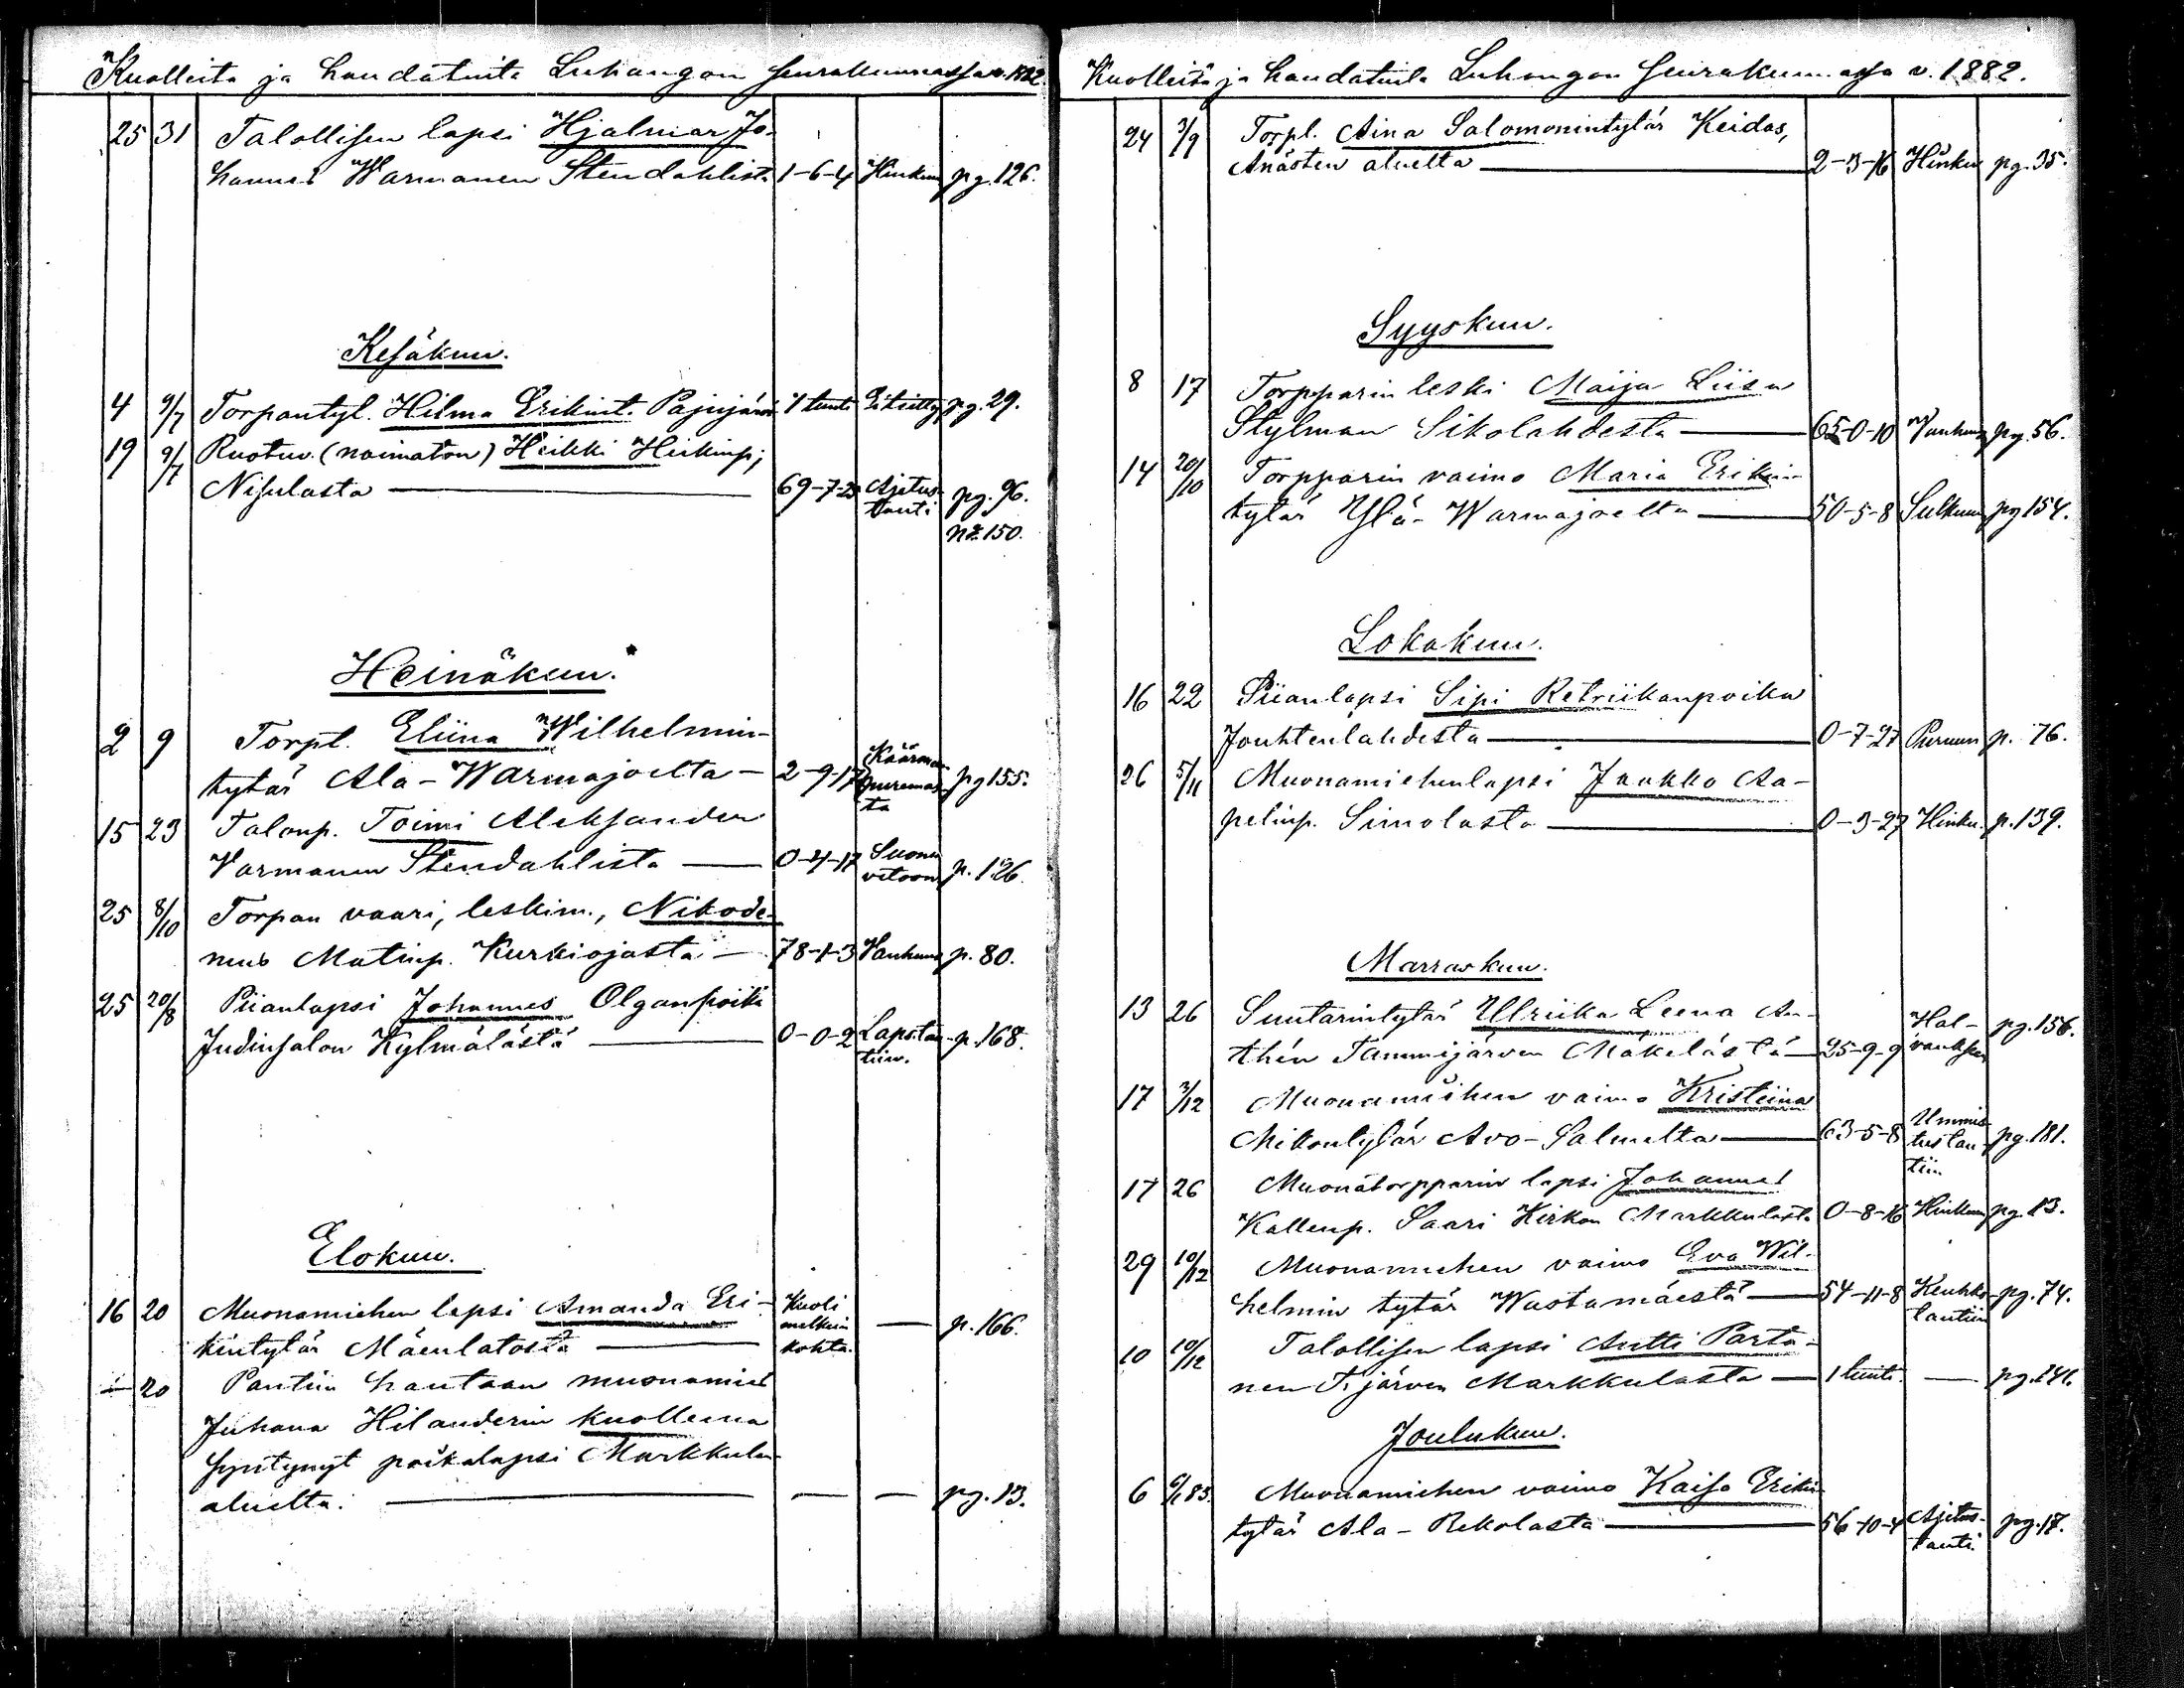 Kuolleita ja haudatuita Luhangon seurakunnassa v. 1882
25 31 Talollisen lapsi Hjalmar Jo-
hannes Warmanen Stendahlista 1-6-4 Hinkuu pg. 126.
Kesäkuu.
4 9/7 Torpantyt. Hilma Erikint. Pajujärvi 1 tunti pg. 29.
19 9/7 Ruotuv. (naimaton) Heikki Heikinp;
Nisulasta 69-7-23 Ajetus- pg. 96.
tauti
No 150.
Heinäkuu.
2 9 Torpl. Eliina Wilhelmin-
Käärme-
tytär Ala-Warmajoelta 2-9-17 puremas- pg 155.
ta
15 23 Talonp. Toimi Aleksander
Varmanen Stendahlista 0-4-17 Suonen- p. 126.
vetoon
25 8/10 Torpan vaari, leskim., Nikode-
mus Matinp. Kurkiojasta 78-1-3 Vanhuus p. 80.
25 20/8 Piianlapsi Johannes Olganpoika
Judinsalon Kylmälästä 0-0-2 Lapsitau- p. 168.
tiin.
Elokuu.
16 20 Muonamiehen lapsi Amanda Eri- Kuoli
melkein
kintytär Mäenlatosta kohta. — p. 166.
— 20 Pantiin hautaan muonamies
Juhana Hilanderin kuollema
syntynyt poikalapsi Markkulan
aluelta. — — pg. 13.
Kuolleita ja haudatuita Luhangon seurakunnassa v. 1882.
24 3/9 Torpl. Aina Salomonintytär Keidas,
Anästen aluelta 2-3-16 Hinkuu pg. 35.
Syyskuu.
8 17 Torpparin leski Maija Liisa
Stylman Sikolahdesta 65-0-10 Vanhuus pg. 56.
14 20/10 Torpparin vaimo Maria Erikin-
tytär Ylä-Warmajoelta 50-5-8 Sulkuun pg 154.
Lokakuu.
16 22 Piianlapsi Sipi Retriikanpoika
Jouhtenlahdesta 0-7-27 p. 76.
26 5/11 Muonamiehenlapsi Jaakko Aa-
pelinp. Simolasta 0-3-27 Hinku. p. 139.
Marraskuu.
13 26 Suutarintytär Ulriika Leena An-
thén Tammijärven Mäkelästä 25-9-9 Hal- pg. 156.
vauksen
17 3/12 Muonamiehen vaimo Kristiina
Mikontytär Avo-Salmelta 63-5-8 Ummis- pg. 181.
tustau-
tiin
17 26 Muonatorpparin lapsi Johannes
Kallenp. Saari Kirkon Markkulasta 0-8-16 Hinkuu pg. 13.
29 10/12 Muonamiehen vaimo Eva Wil-
helmin tytär Wastamäestä 54-11-8 Keuhko- pg. 74.
tautiin
10 10/12 Talollisen lapsi Antti Parta-
nen T. järven Markkulasta 1 tunti. — pg. 141.
Joulukuu.
6 6/1 83. Muonamiehen vaimo Kaisa Erikin-
tytär Ala-Rekolasta 56-10-4 Ajetus- pg. 17.
tauti